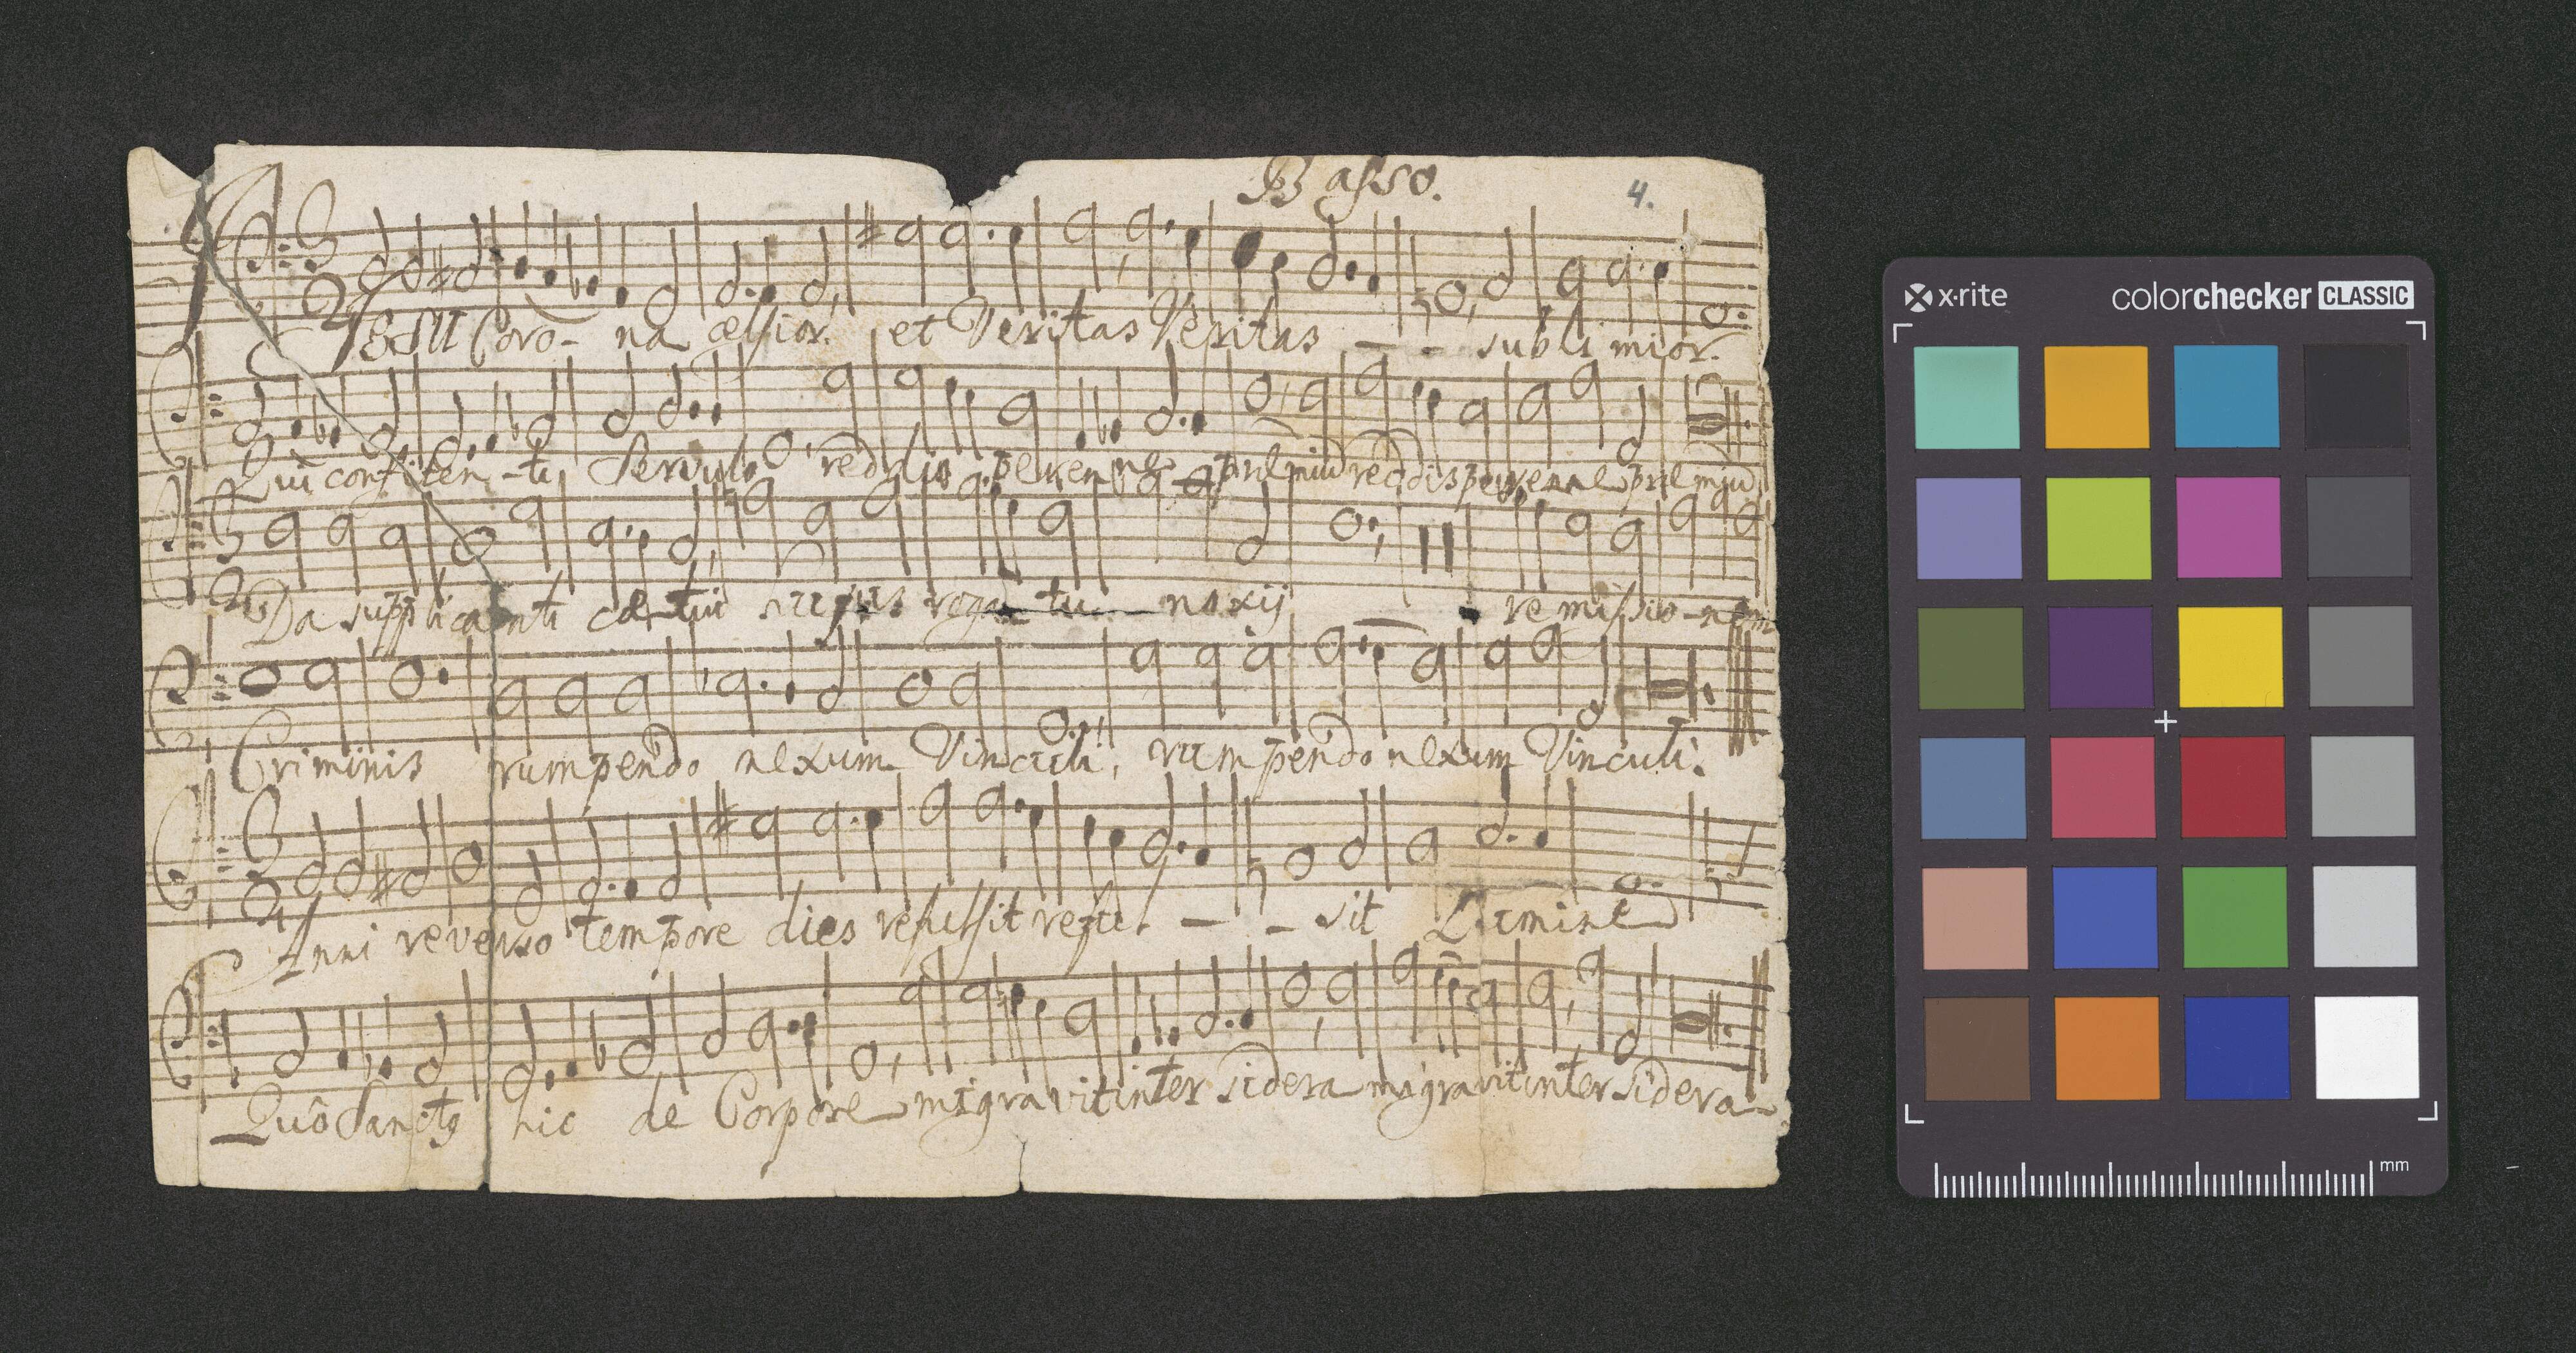 Basso.
4.
JESU Coro- na celsior. et Veritas Veritas - - subli mior.
Qui confiten-ti Servulo reddis perenne præmiũ reddis perenne præmiũ
Da supplicanti cœtui rogatu noxij remissio-nem
Criminis rumpendo nexum Vinculi, rumpendo nexum Vinculi.
Anni reverso tempore dies refulsit reful - - sit Lumine
Quô Sanctꝯ hic de Corpore migravit inter sidera migravit inter sidera
x·rite colorchecker CLASSIC
mm